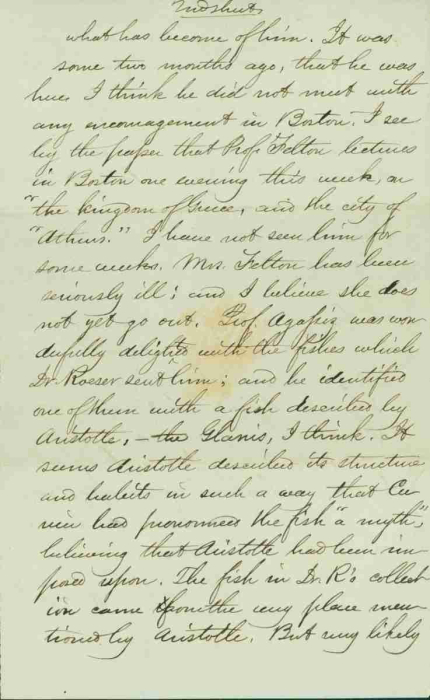 what has become of him. It was
some two months ago, that he was
here. I think he did not meet with
any encouragement in Boston. I see
by the paper that Prof. Felton lectures
in Boston one evening this week, on
"the kingdom of Greece, and the city of
"Athens." I have not seen him for
some weeks. Mrs. Felton has been
seriously ill; and I believe she does
not yet go out. Prof. Agassiz was won
derfully delighted with the fishes which
Dr. Roeser sent him; and he identified
one of them with a fish described by
Aristotle, — the Glanis, I think. It
seems Aristotle described its structure
and habits in such a way that Cu
vier had pronounced the fish "a myth",
believing that Aristotle had been im
posed upon. The fish in Dr. R's collect
ion came from the very place men
tioned by Aristotle. But very likely